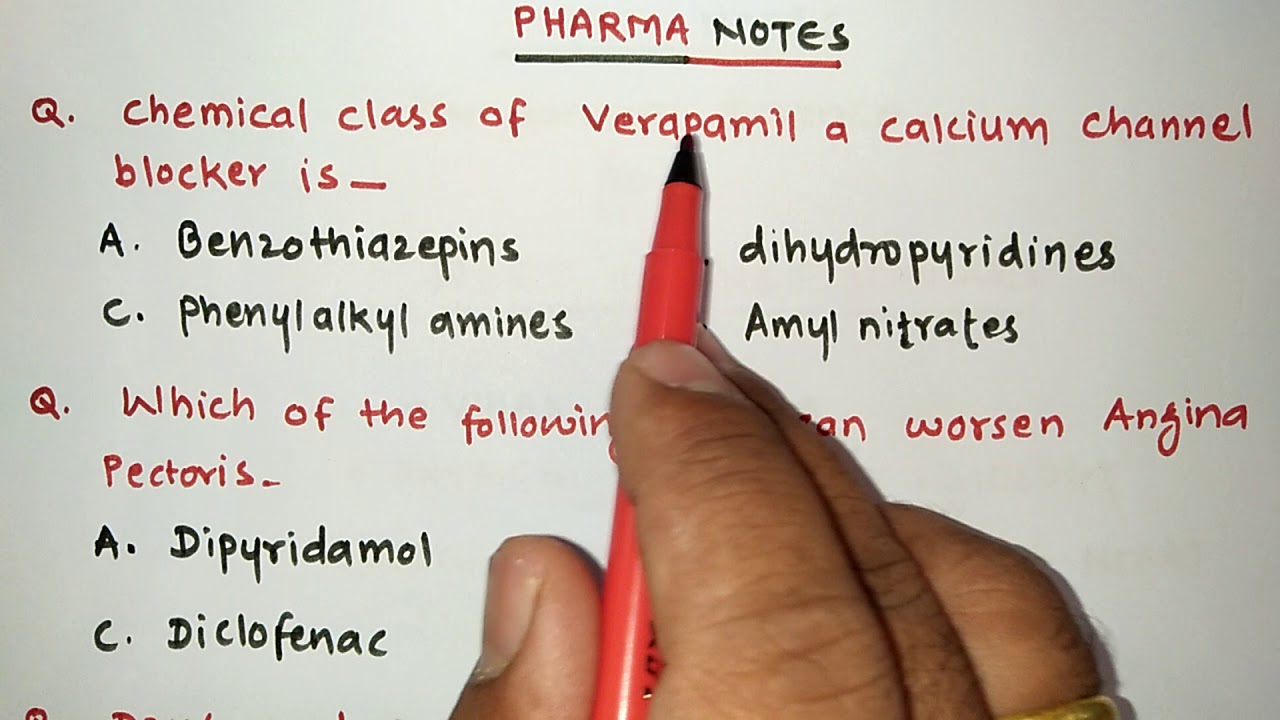 PHARMA NOTES
Q. Chemical class of Verapamil a calcium channel
blocker is -
A. Benzothiazepins . dihydropyridines
C. Phenylalkyl amines . Amyl nitrates
Q. Which of the worsen Angina
Pectoris -
A. Dipyridamol
C. Diclofenac